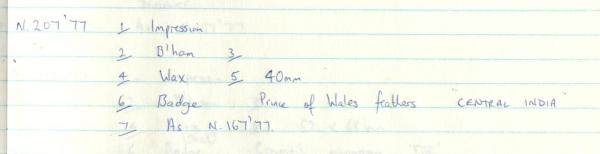 N. 207'77 1 Impression
2 B'ham 3
4 Wax 5 40mm
6 Badge Prince of Wales feathers "CENTRAL INDIA"
7 As N. 167'77.